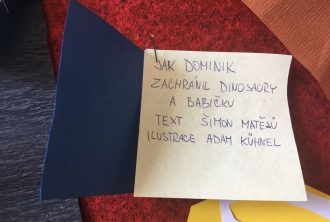 JAK DOMINIK
ZACHRÁNIL DINOSAURY
A BABIČKU
TEXT ŠIMON MATĚJŮ
ILUSTRACE ADAM KÜHNEL